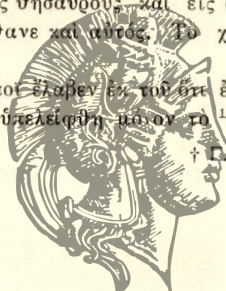 θησαυρούς καὶ εἰς
θανε καὶ αὐτός. Το χ
ἔλαβεν ἐκ τοῦ ὅτι ἐ
ὑπελείφθη μό ον τὸ
† Γ